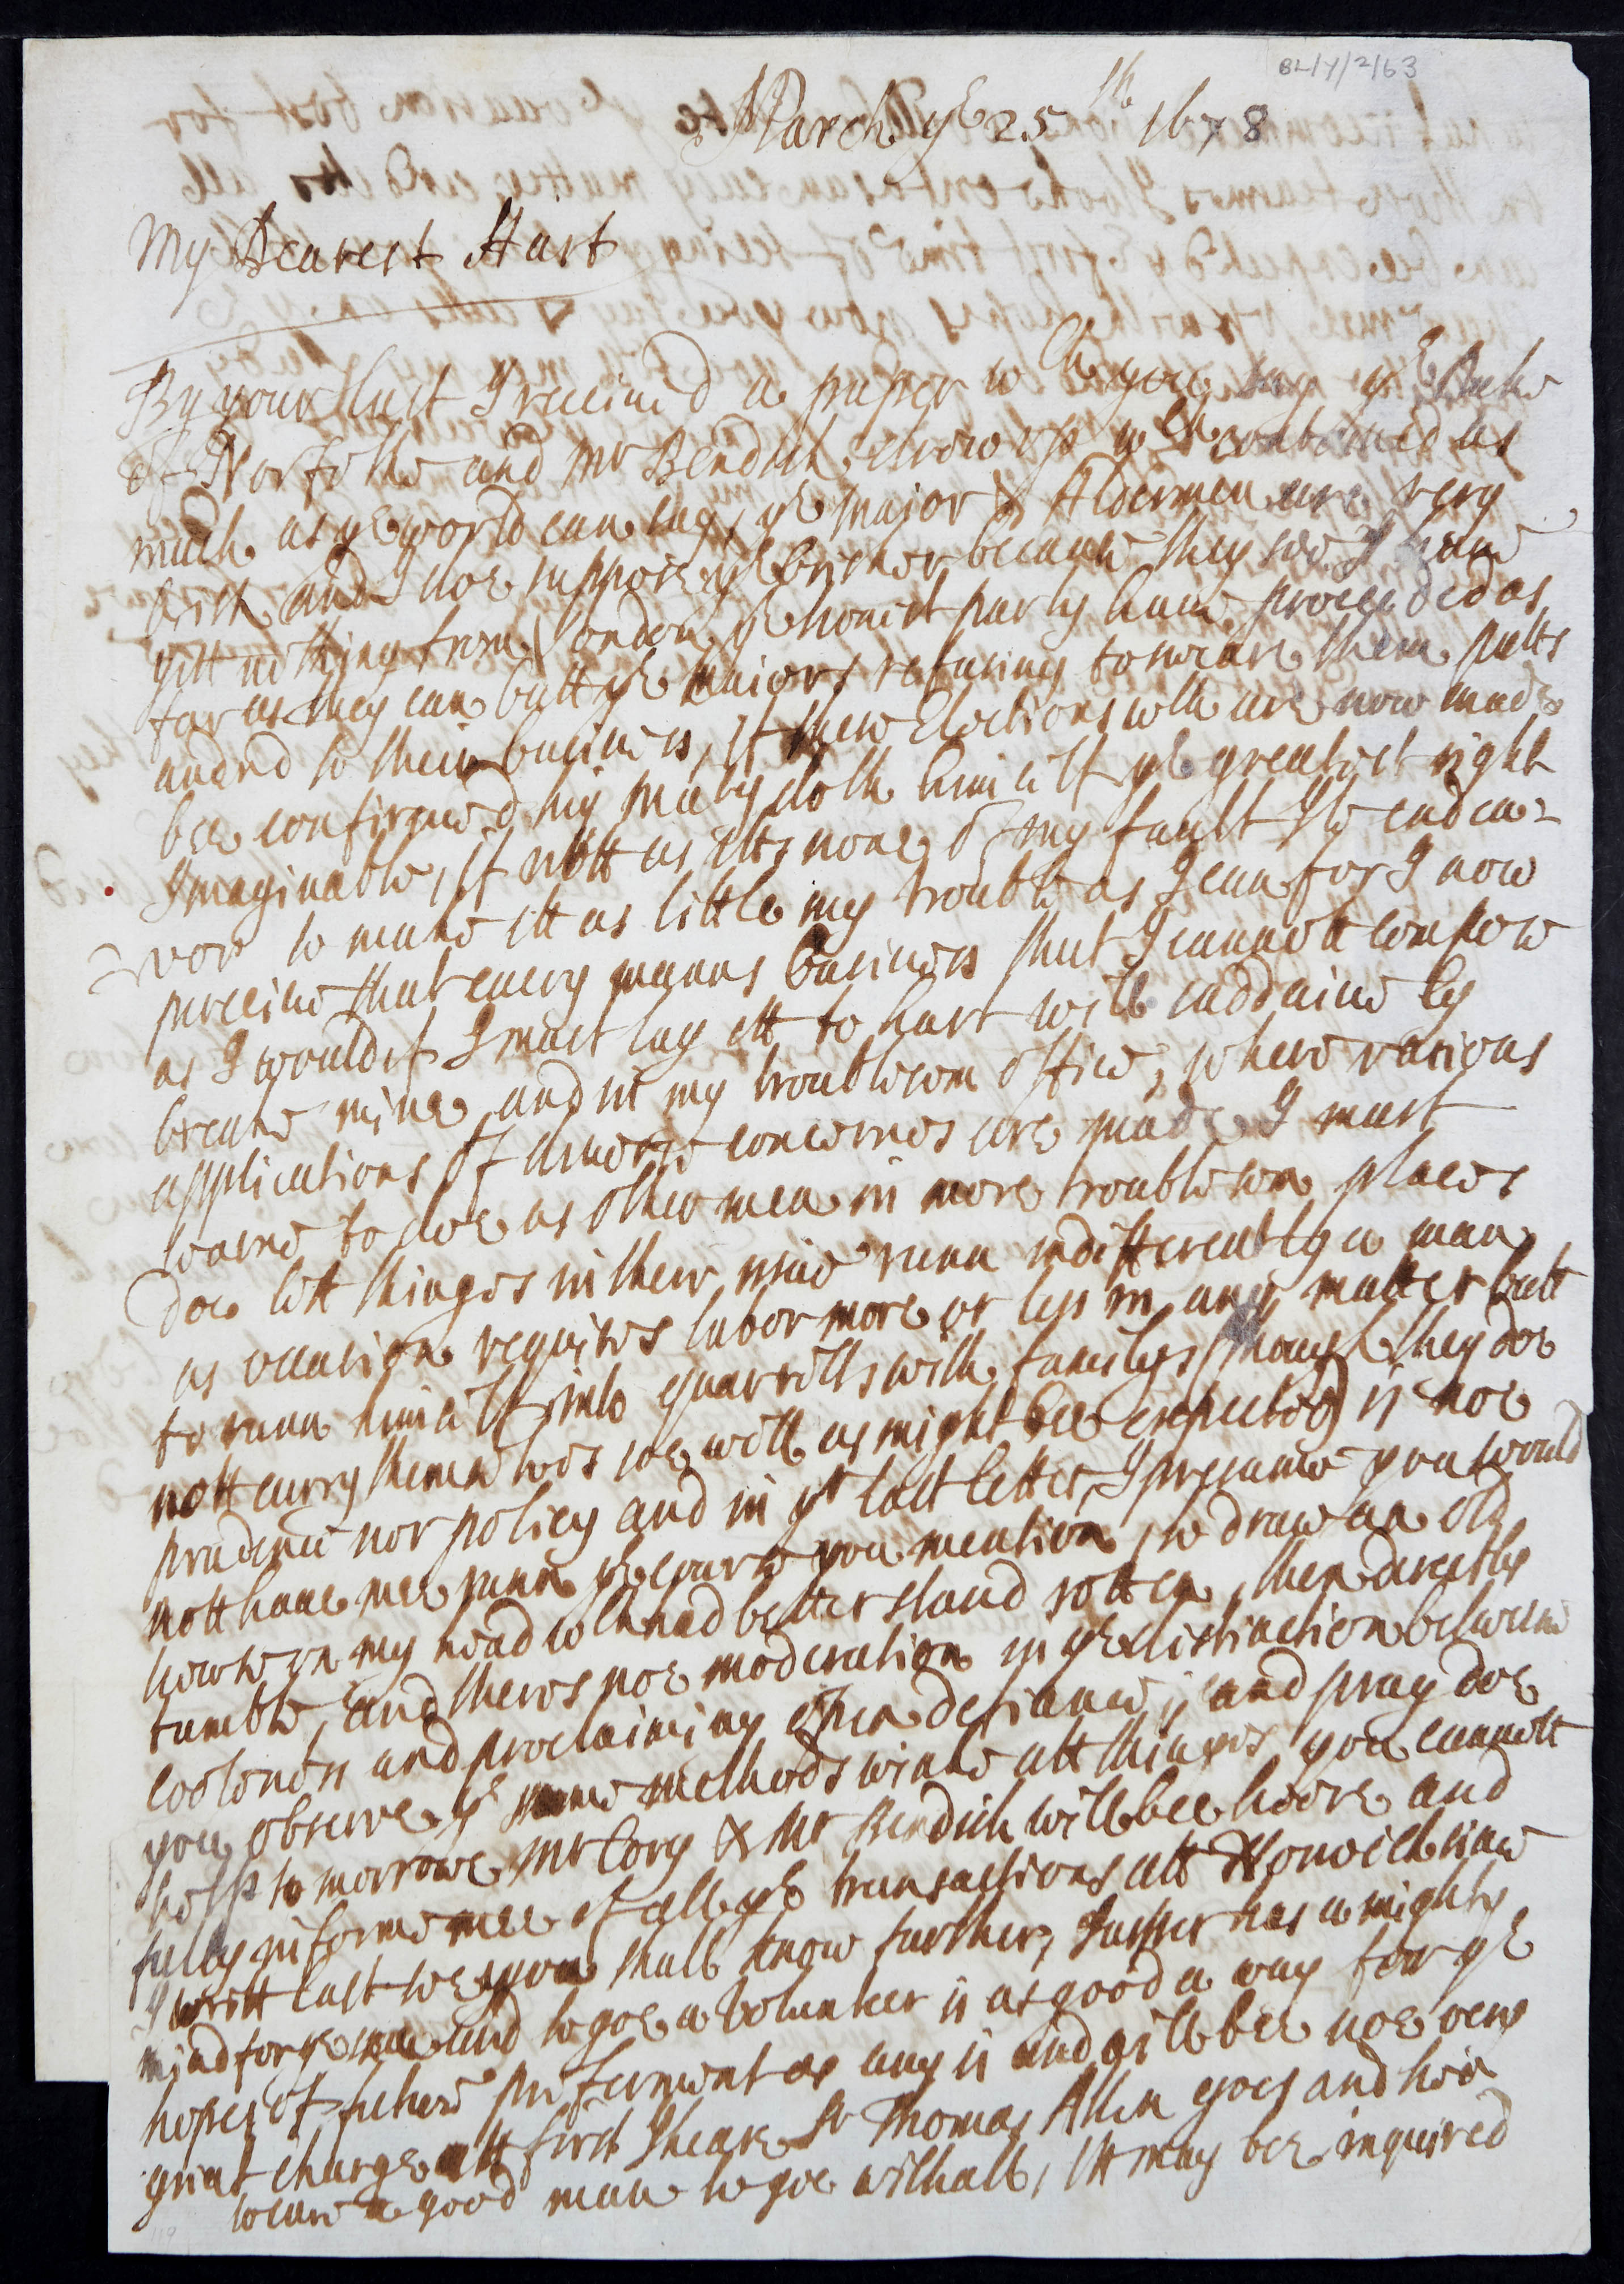 BL/Y/2/63
March ye 25th 1678
My Dearest Hart
By your last I receiued a paper wch you say ye Duke
of Norfolke and Mr Bendish drew up wch contained as
much as ye world can say, ye Major & Aldermen are very
brisk and I doe suppose ye brisker because they see I haue
yett nothing from London, ye honest party haue proceeded as
far as they can butt ye maiors refusing to sweare them putts
an end to their busines, If these Elections wch are now made
bee confirmed his Maty doth himself ye greatest right
Imaginable, If nott as itts none of my fault Ile endea-
vor to make itt as little my trouble as I can for I now
perceiue that euery mans busines that I cannott compose
as I would if I must lay itt to hart will suddainely
breake mine, and in my troublesom office, where various
applications of diuerse concernes are made I must
learne to doe as other men in more troublesom places
doe lett things in their nature runn indifferently a man
as occasion requires labor more or less in any matter butt
to runn himself into quarrells with familys (though they doe
nott carry themselues soe well as might bee expected) is noe
prudence nor policy and in yr last letter I presume you would
nott haue mee runn ye course you mention, to draw an old
howse on my head wch had better stand rotten, then directly
tumble, and theres noe moderation in ye distinction betweene
cooleness and proclaiming open defiance, and pray doe
you obserue ye same methods winke att things you cannott
help to morrowe Mr Cory & Mr Bendish will bee heere and
fully informe mee of all ye transactions att Norwich since
I writt last to you shall know further, Jasper has a mighty
mind for ye sea and to goe a Volunteer is as good a way for ye
hopes of future preferment as any is and will bee noe very
great charge att first I heare Sr Thomas Allen goes and hee's
a good man to goe withall, Itt may bee inquired